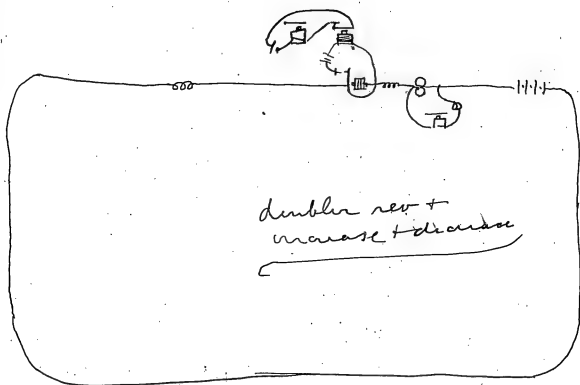 doubler rev +
increase + decrease